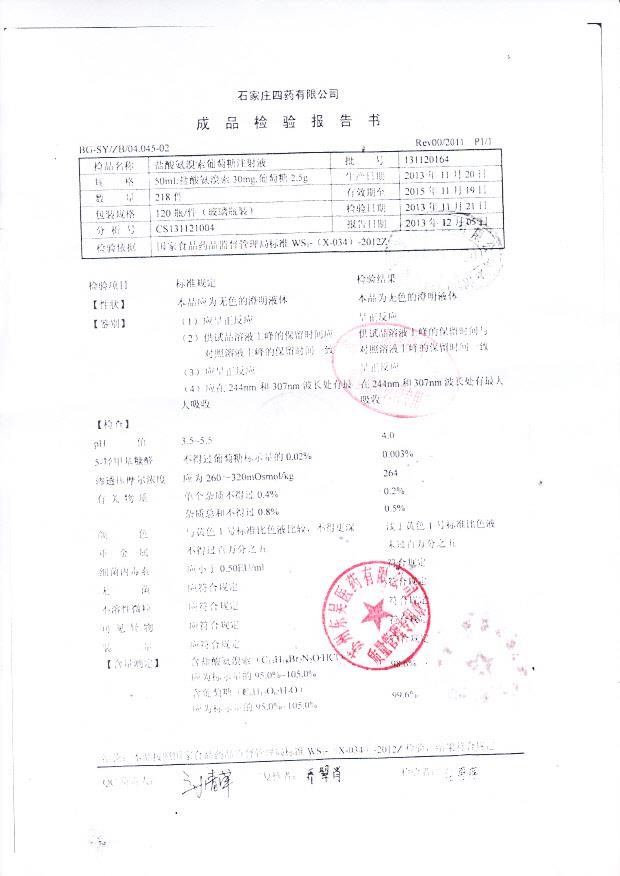 石家庄四药有限公司
成品检验报告书
BG-SY/ZB/04.045-02 Rev00/2011 P1/1
检品名称 盐酸氨溴素葡萄糖注射液 批号 131120164
规格 50ml:盐酸氨溴素30mg,葡萄糖2.5g 生产日期 2013年11月20日
数量 218件 有效期至 2015年11月19日
包装规格 120瓶/件(玻璃瓶装) 检验日期 2013年11月21日
分析号 CS131121004 报告日期 2013年12月05日
检验依据 国家食品药品监督管理局标准WS₁-(X-034)-2012Z
检验项目 标准规定 检验结果
【性状】 本品应为无色的澄明液体 本品为无色的澄明液体
【鉴别】 (1)应呈正反应 呈正反应
(2)供试品溶液主峰的保留时间应 供试品溶液主峰的保留时间与
对照溶液主峰的保留时间一致 对照溶液主峰的保留时间一致
(3)应呈正反应 呈正反应
(4)应在244nm和307nm波长处有最 在244nm和307nm波长处有最大
大吸收 吸收
【检查】
pH值 3.5~5.5 4.0
5-羟甲基糠醛 不得过葡萄糖标示量的0.02% 0.003%
渗透压摩尔浓度 应为260~320mOsmol/kg 264
有关物质 单个杂质不得过0.4% 0.2%
杂质总和不得过0.8% 0.5%
颜色 与黄色1号标准比色液比较,不得更深 浅于黄色1号标准比色液
重金属 不得过百万分之五 未过百万分之五
细菌内毒素 应小于0.50EU/ml 符合规定
无菌 应符合规定 符合规定
不溶性微粒 应符合规定 符合规定
可见异物 应符合规定 符合规定
装量 应符合规定 符合规定
【含量测定】 含盐酸氨溴素(C₁₃H₁₈Br₂N₂O·HCl) 98.6%
应为标示量的95.0%~105.0%
含葡萄糖(C₆H₁₂O₆·H₂O) 99.6%
应为标示量的95.0%~105.0%
结论:本品按照国家食品药品监督管理局标准WS₁-(X-034)-2012Z检验,结果符合规定
QC负责人: 复核者: 检验者:
苏州东吴医药有限公司
质量管理专用章